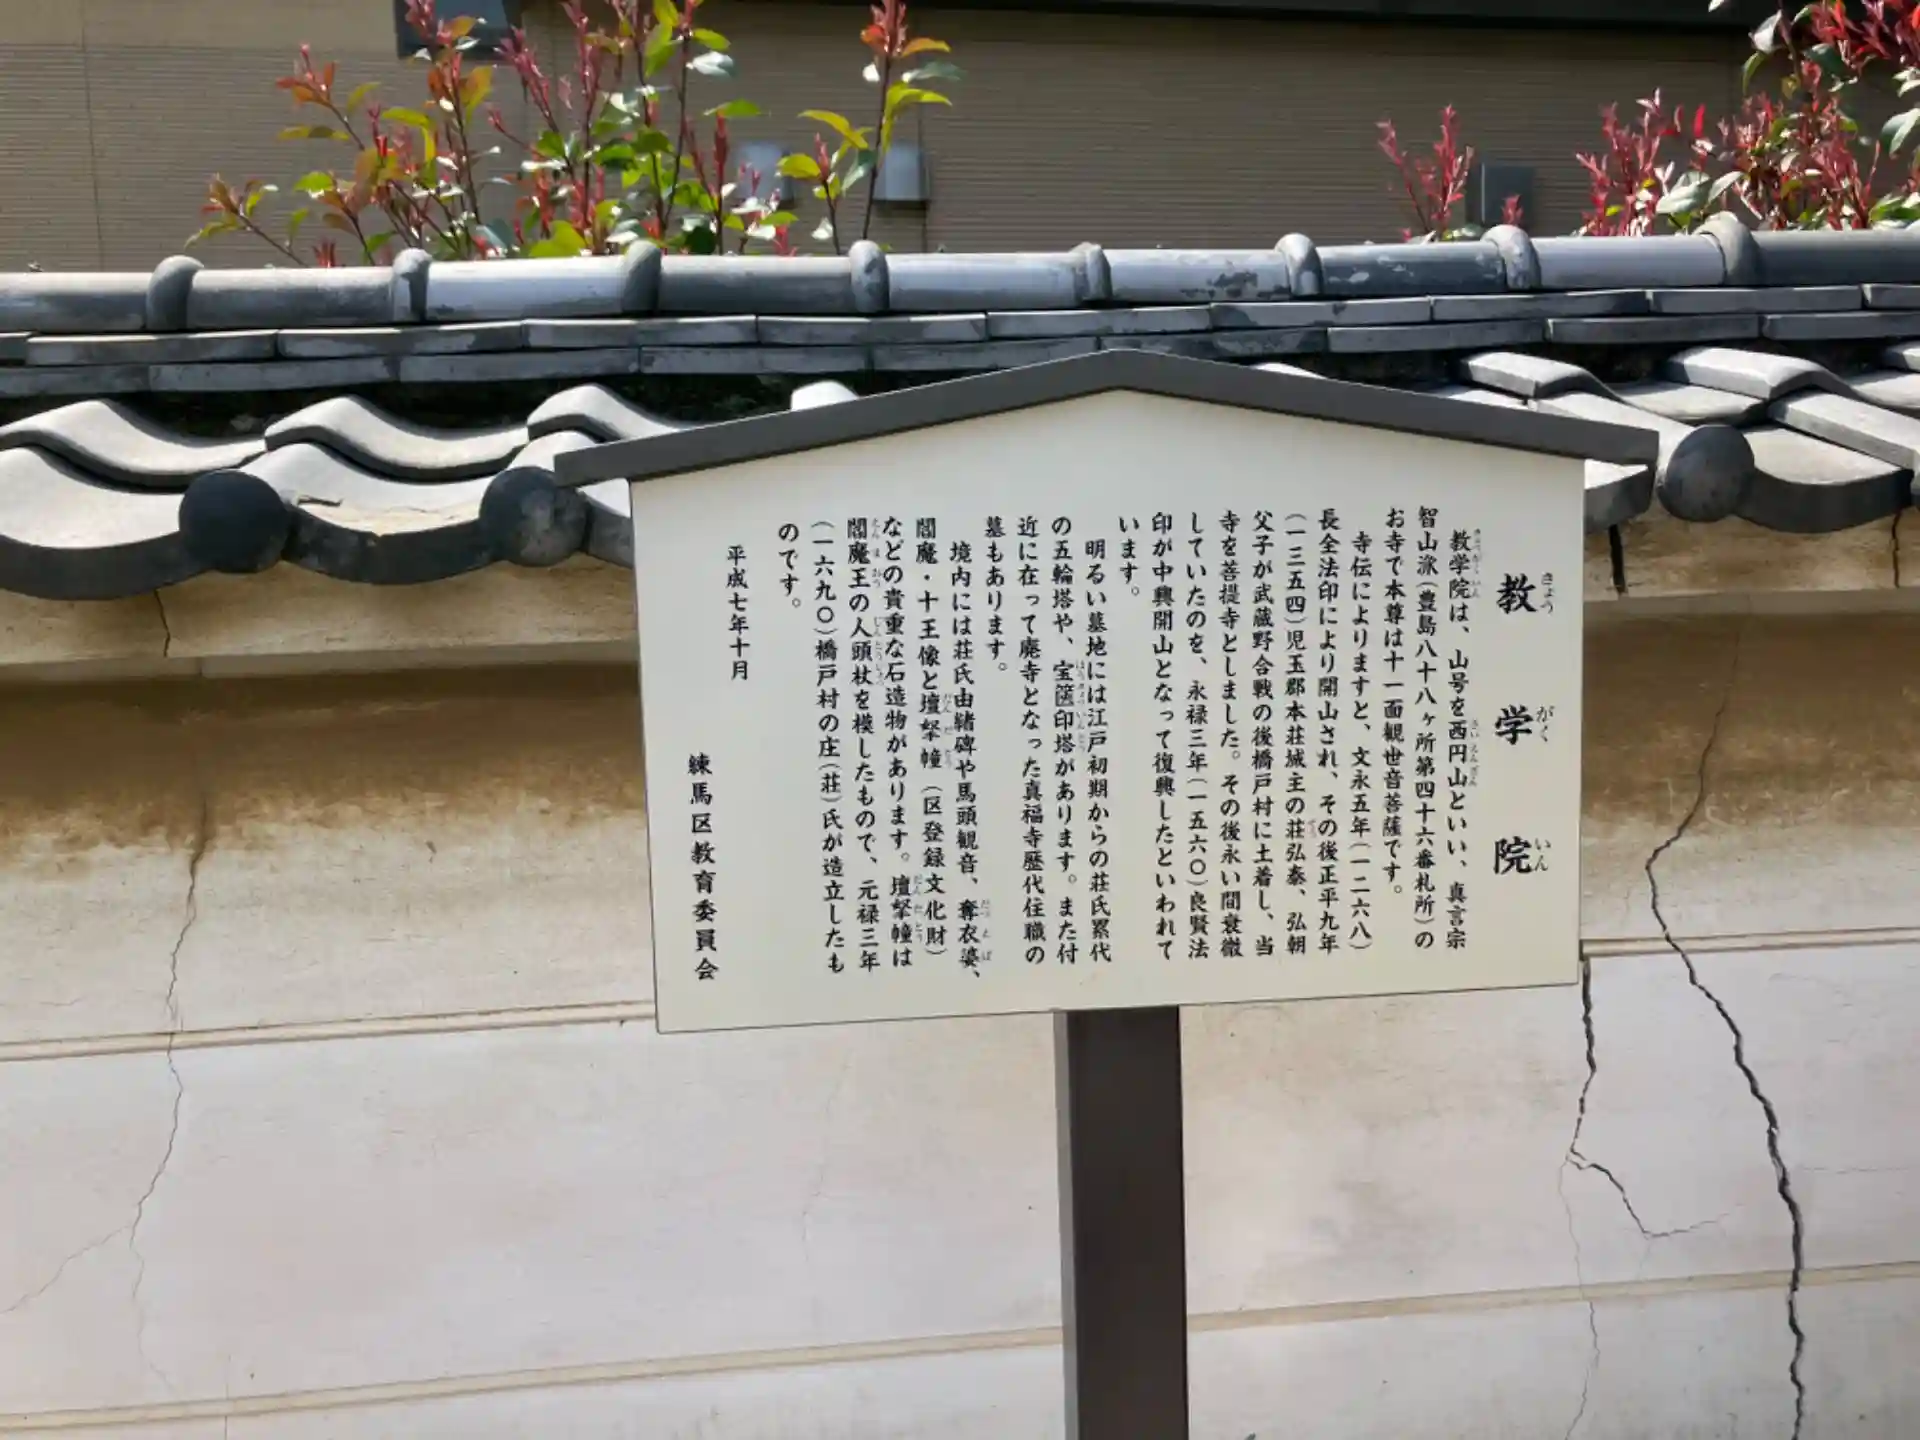 教学院
教学院は、山号を西円山といい、真言宗
智山派(豊島八十八ヶ所第四十六番札所)の
お寺で本尊は十一面観世音菩薩です。
寺伝によりますと、文永五年(一二六八)
長全法印により開山され、その後正平九年
(一三五四)児玉郡本荘城主の荘弘泰、弘朝
父子が武蔵野合戦の後橋戸村に土着し、当
寺を菩提寺としました。その後永い間衰微
していたのを、永禄三年(一五六〇)良賢法
印が中興開山となって復興したといわれて
います。
明るい墓地には江戸初期からの荘氏累代
の五輪塔や、宝篋印塔があります。また付
近に在って廃寺となった真福寺歴代住職の
墓もあります。
境内には荘氏由緒碑や馬頭観音、奪衣婆、
閻魔・十王像と壇拏幢(区登録文化財)
などの貴重な石造物があります。壇拏幢は
閻魔王の人頭杖を模したもので、元禄三年
(一六九〇)橋戸村の庄(荘)氏が造立したも
のです。
平成七年十月
練馬区教育委員会